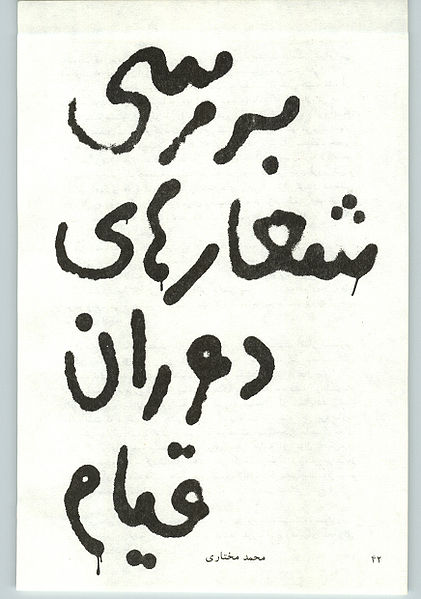 بررسی
شعارهای
دوران
قیام
محمد مختاری
۴۲